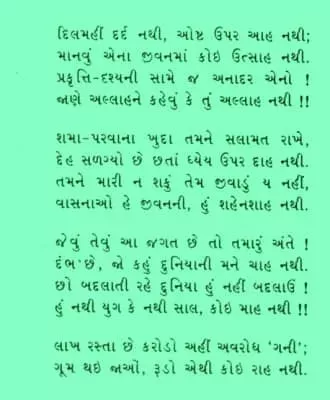 દિલમહીં દર્દ નથી, ઓષ્ટ ઉપર આહ નથી;
માનવું એના જીવનમાં કોઇ ઉત્સાહ નથી.
પ્રકૃત્તિ-દશ્યની સામે જ અનાદર એનો !
જાણે અલ્લાહને કહેવું કે તું અલ્લાહ નથી !!
શમા-પરવાના ખુદા તમને સલામત રાખે,
દેહ સળગ્યો છે છતાં ધ્યેય ઉપર દાહ નથી.
તમને મારી ન શકું તેમ જીવાડું ય નહીં,
વાસનાઓ હે જીવનની, હું શહેનશાહ નથી.
જેવું તેવું આ જગત છે તો તમારું અંતે !
દંભ છે, જો કહું દુનિયાની મને ચાહ નથી.
છો બદલાતી રહે દુનિયા હું નહીં બદલાઉં !
હું નથી યુગ કે નથી સાલ, કોઇ માહ નથી !!
લાખ રસ્તા છે કરોડો અહીં અવરોધ ‘ગની’;
ગૂમ થઇ જાઓં, રૂડો એથી કોઇ રાહ નથી.